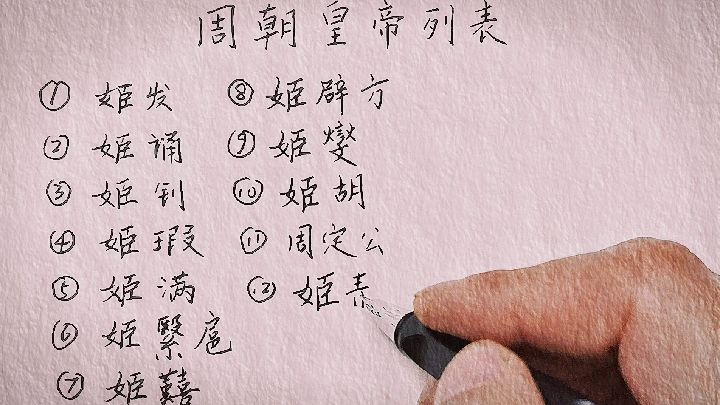 周朝皇帝列表
① 姬发
② 姬诵
③ 姬钊
④ 姬瑕
⑤ 姬满
⑥ 姬繄扈
⑦ 姬囏
⑧ 姬辟方
⑨ 姬燮
⑩ 姬胡
⑪ 周定公
⑫ 姬